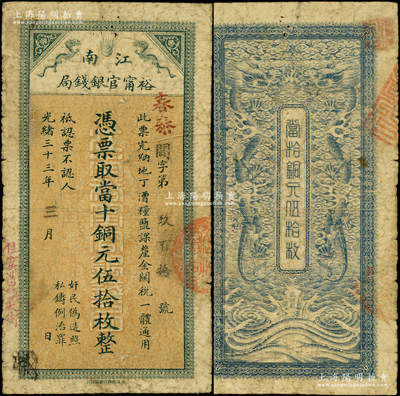 江南
裕甯官銀錢局
此票完納地丁漕糧鹽課厘金關稅一體通用
字第
號
憑票取當十銅元伍拾枚整
祗認票不認人
光緒三十三年三月日
奸民偽造照
私鑄例治罪
當拾銅元伍拾枚
上海陽明拍賣
上海陽明拍賣